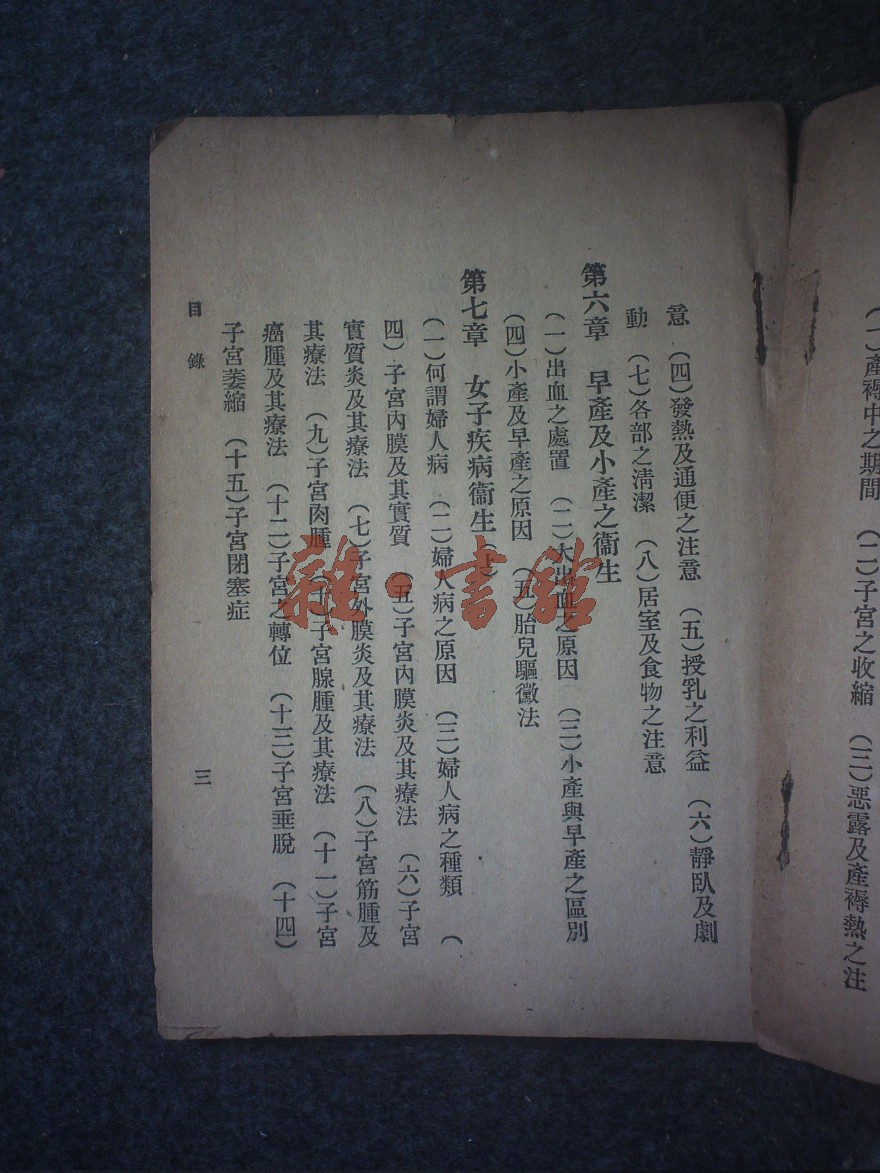 (一)產褥中之期間 (二)子宮之收縮 (三)惡露及產褥熱之注
意 (四)發熱及通便之注意 (五)授乳之利益 (六)靜臥及劇
動 (七)各部之淸潔 (八)居室及食物之注意
第六章 早產及小產之衞生
(一)出血之處置 (二)大出血之原因 (三)小產與早產之區別
(四)小產及早產之原因 (五)胎兒驅黴法
第七章 女子疾病衞生
(一)何謂婦人病 (二)婦人病之原因 (三)婦人病之種類 (
四)子宮內膜及其實質 (五)子宮內膜炎及其療法 (六)子宮
實質炎及其療法 (七)子宮外膜炎及其療法 (八)子宮筋腫及
其療法 (九)子宮肉腫 (十)子宮腺腫及其療法 (十一)子宮
癌腫及其療法 (十二)子宮之轉位 (十三)子宮垂脫 (十四)
子宮萎縮 (十五)子宮閉塞症
目錄
三
雜·書館